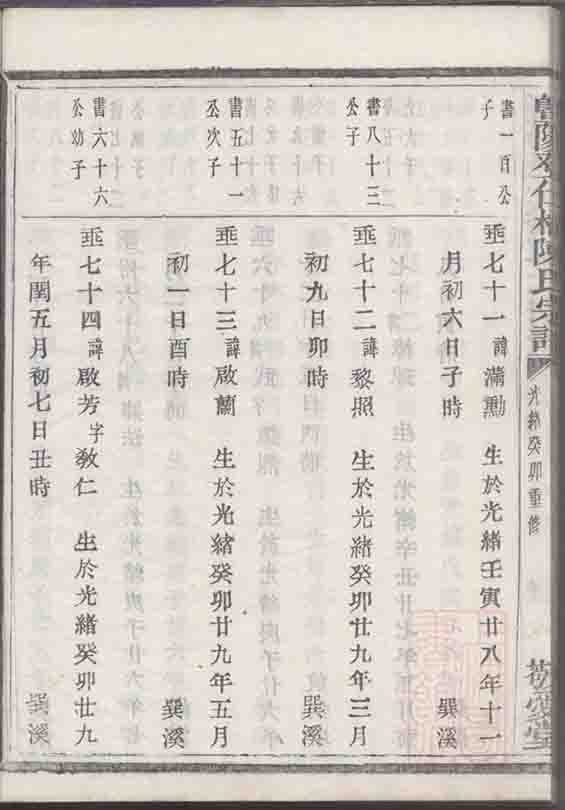 陳氏宗譜
光緒癸卯重修
書一百公
子
垂七十一 諱滿勳 生於光緒壬寅廿八年十一
月初六日子時 巽溪
書八十三
公子
垂七十二 諱黎照 生於光緒癸卯廿九年三月
初九日卯時 巽溪
書五十一
公次子
垂七十三 諱啟蘭 生於光緒癸卯廿九年五月
初一日酉時 巽溪
書六十六
公幼子
垂七十四 諱啟芳 字敎仁 生於光緒癸卯廿九
年閏五月初七日丑時 巽溪